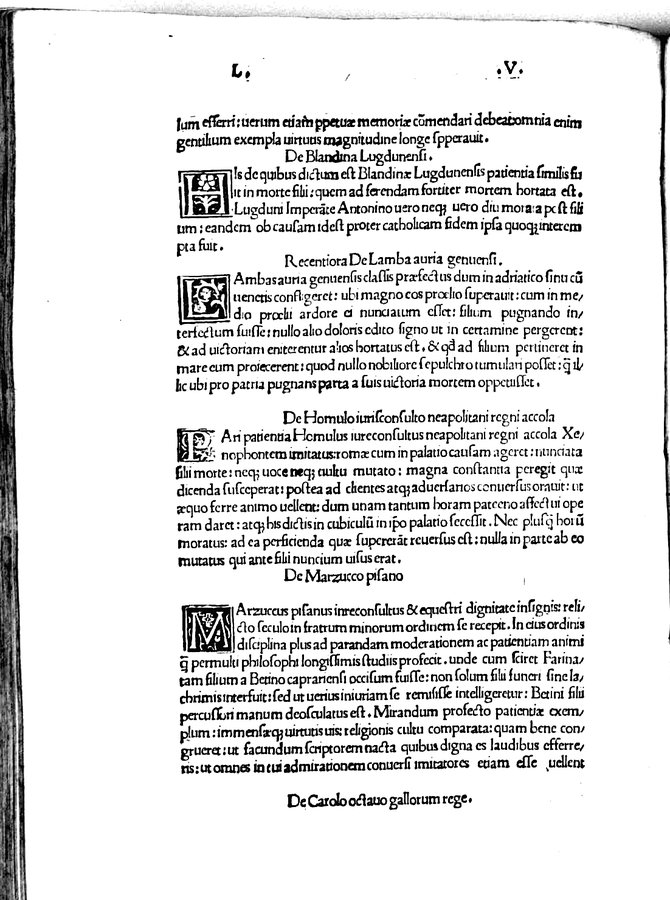 L. .V.
sum efferri: uerum etiam ppetuæ memoriæ cõmendari debeat omnia enim
gentilium exempla uirtutis magnitudine longe spperauit.
De Blandina Lugdunensi.
HIs de quibus dictum est Blandinæ Lugdunensis patientia similis fu
it in morte filii: quem ad ferendam fortiter mortem hortata est.
Lugduni Imperãte Antonino uero neq; uero diu morata post fili
um: eandem ob causam idest propter catholicam fidem ipsa quoq; interem
pta fuit.
Recentiora De Lamba auria genuensi.
LAmbas auria genuensis classis præfectus dum in adriatico sinu cũ
uenetis confligeret: ubi magno eos prœlio superauit: cum in me/
dio prœlii ardore ei nunciatum esset: filium pugnando in/
terfectum fuisse: nullo alio doloris edito signo ut in certamine pergerent:
& ad uictoriam eniterentur alios hortatus est. & qd ad filium pertineret in
mare eum proiecerent: quod nullo nobiliore sepulchro tumulari posset: q̃ il/
lic ubi pro patria pugnans parta a suis uictoria mortem oppetisset.
De Homulo iurisconsulto neapolitani regni accola
PAri patientia Homulus iureconsultus neapolitani regni accola Xe/
nophontem imitatus: romæ cum in palatio causam ageret: nunciata
filii morte: neq; uoce neq; uultu mutato: magna constantia peregit quæ
dicenda susceperat: postea ad clientes atq; aduersarios conuersus orauit: ut
æquo ferre animo uellent: dum unam tantum horam paterno affectui ope
ram daret: atq; his dictis in cubiculũ in ip̃o palatio secessit. Nec plusq̃ horũ
moratus: ad ea perficienda quæ supererãt reuersus est: nulla in parte ab eo
mutatus qui ante filii nuncium uisus erat.
De Marzucco pisano
MArzuccus pisanus inreconsultus & equestri dignitate insignis: reli/
cto seculo in fratrum minorum ordinem se recepit. In eius ordinis
disciplina plus ad parandam moderationem ac patientiam animi
q̃ permulti philosophi longissimis studiis profecit. unde cum sciret Farina/
tam filium a Betino caprariensi occisum fuisse: non solum filii funeri sine la/
chrimis interfuit: sed ut uerius iniuriam se remisisse intelligeretur: Betini filii
percussori manum deosculatus est. Mirandum profecto patientiæ exem/
plum: immensæq; uirtutis uis: religionis cultu comparata: quam bene con/
grueret: ut facundum scriptorem nacta quibus digna es laudibus efferre/
ris: ut omnes in tui admirationem conuersi imitatores etiam esse uellent
De Carolo octauo gallorum rege.